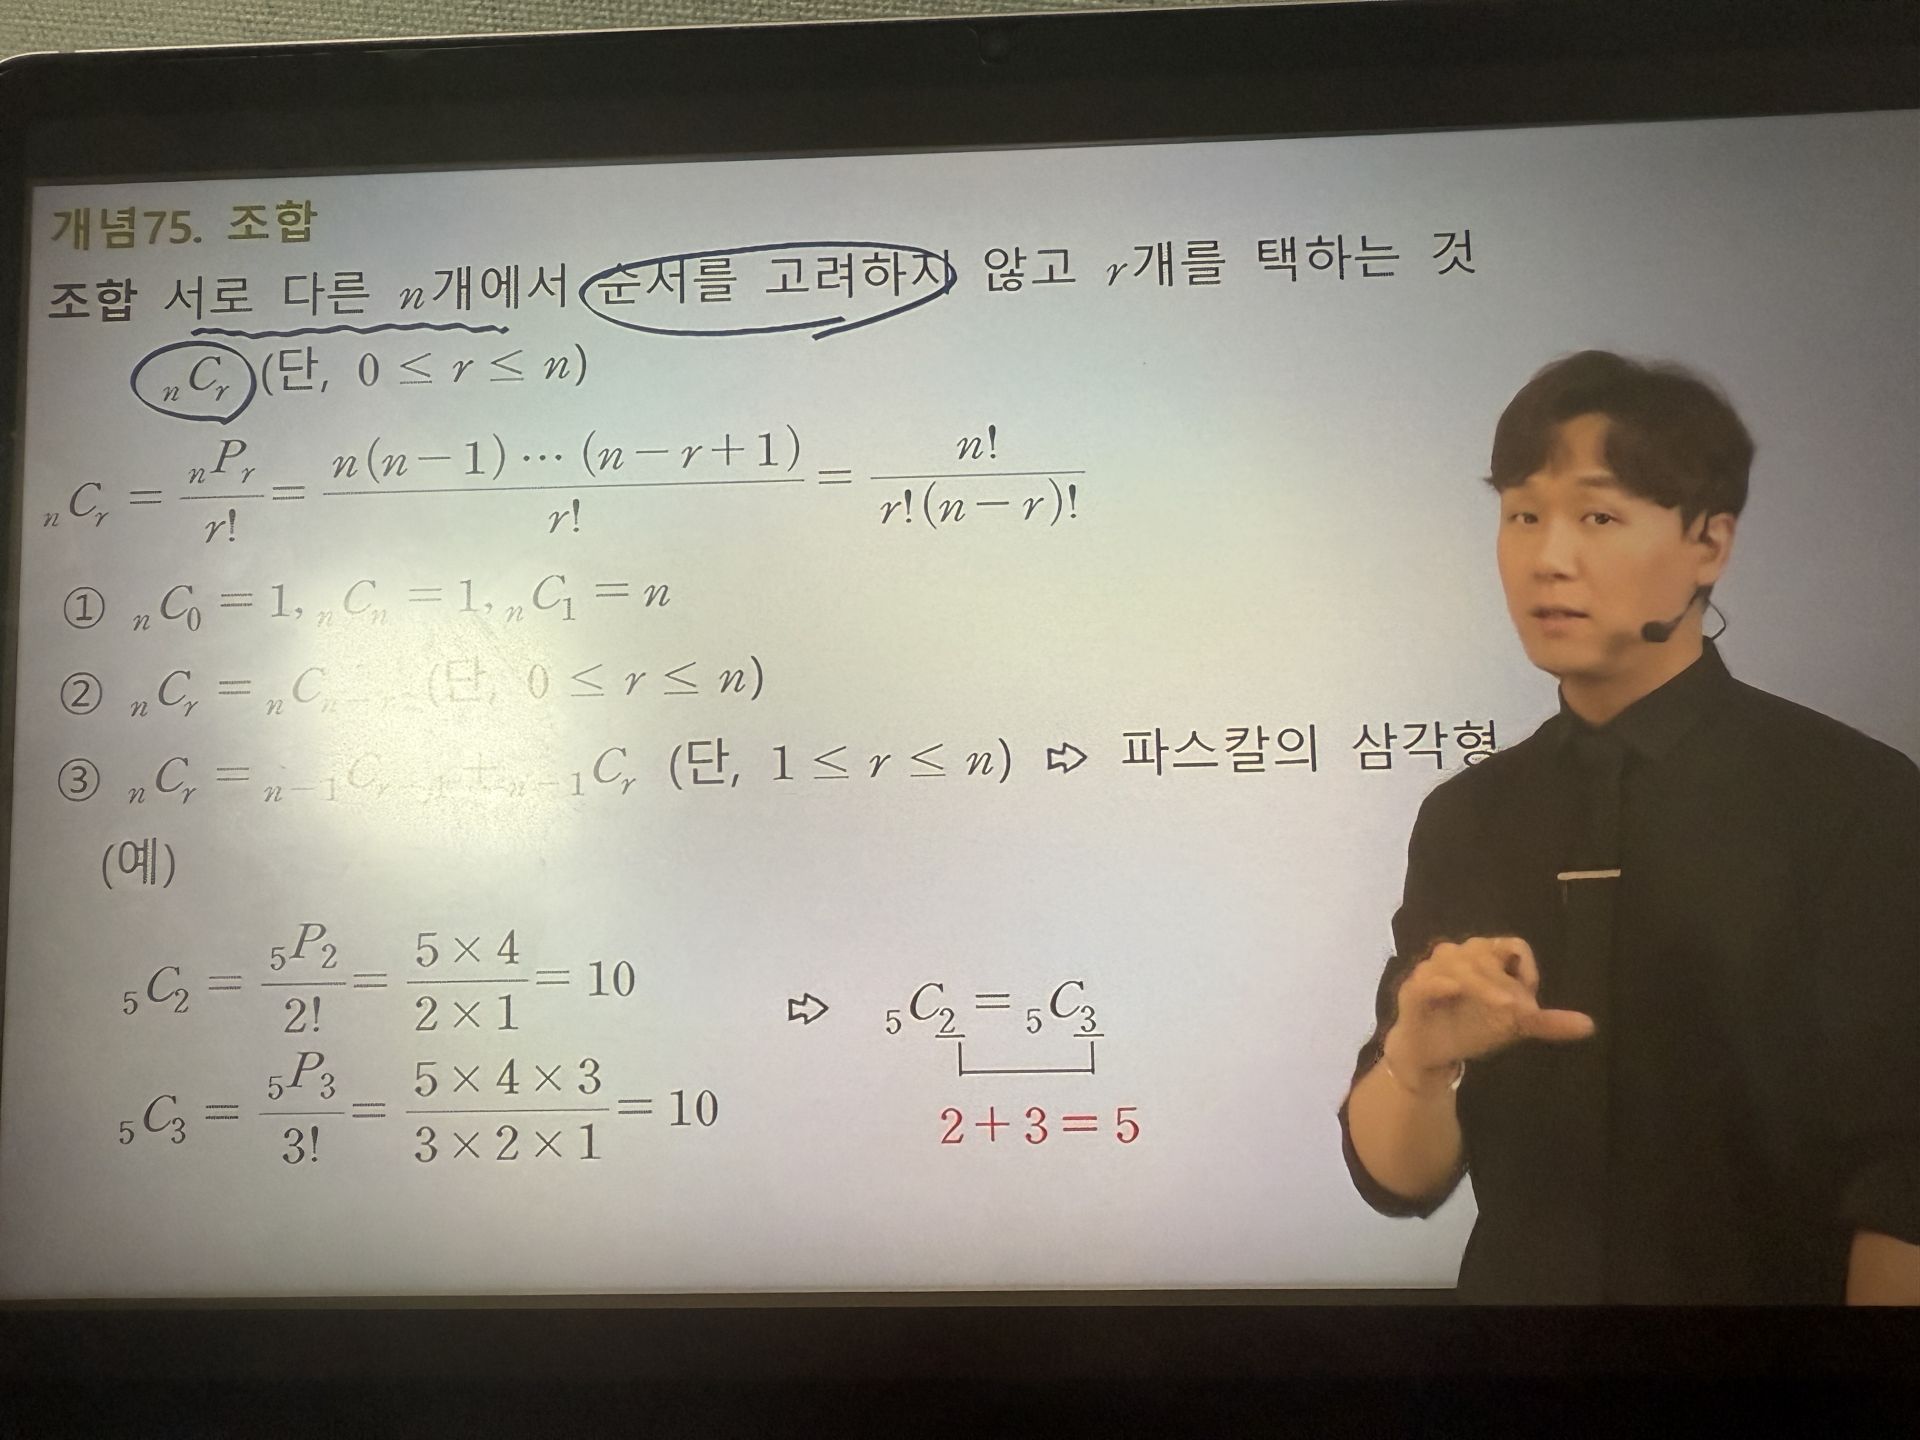 개념75. 조합
조합 서로 다른 n개에서 순서를 고려하지 않고 r개를 택하는 것
nCr (단, 0 ≤ r ≤ n)
nCr = nPr / r! = n(n−1)⋯(n−r+1) / r! = n! / r!(n−r)!
① nC0 = 1, nCn = 1, nC1 = n
② nCr = nCn−r (단, 0 ≤ r ≤ n)
③ nCr = n−1Cr−1 + n−1Cr (단, 1 ≤ r ≤ n) ⇨ 파스칼의 삼각형
(예)
5C2 = 5P2 / 2! = 5×4 / 2×1 = 10
⇨ 5C2 = 5C3
5C3 = 5P3 / 3! = 5×4×3 / 3×2×1 = 10
2+3=5